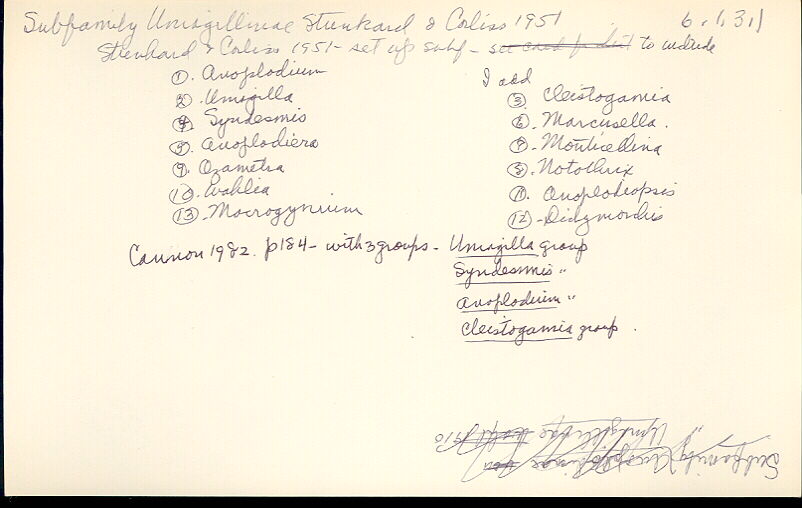 Subfamily Umagillinae Stunkard & Corliss 1951 6.1.3.1
Stunkard & Corliss 1951 - set up subf - see card for list to include
①. Anoplodium
②. Umagilla
④. Syndesmis
⑤. Anoplodiera
⑨. Ozametra
⑩. Wahlia
⑬. Macrogynium
I add
③ Cleistogamia
⑥. Marcusella.
⑦. Monticellina
⑧. Notothrix
⑪. Anoplodiopsis
⑫ - Didymorchis
Cannon 1982. p184 - with 3 groups - Umagilla group
Syndesmis "
Anoplodium "
Cleistogamia group.
Subfamily
Umagillidae Wahl 1910